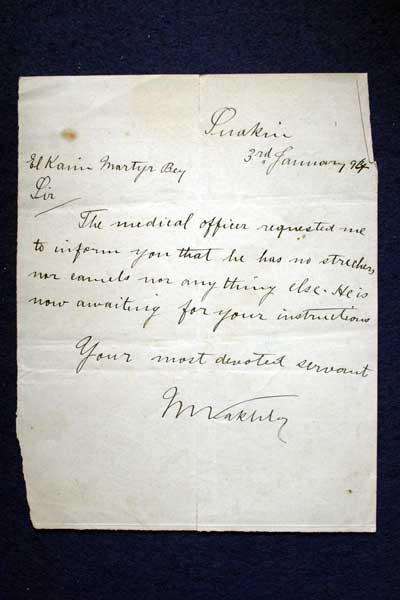 Suakin
3rd January 94
El Kaim Martyr Bey
Sir
The medical officer requested me
to inform you that he has no strechers
nor camels nor anything else. He is
now awaiting for your instructions
Your most devoted servant